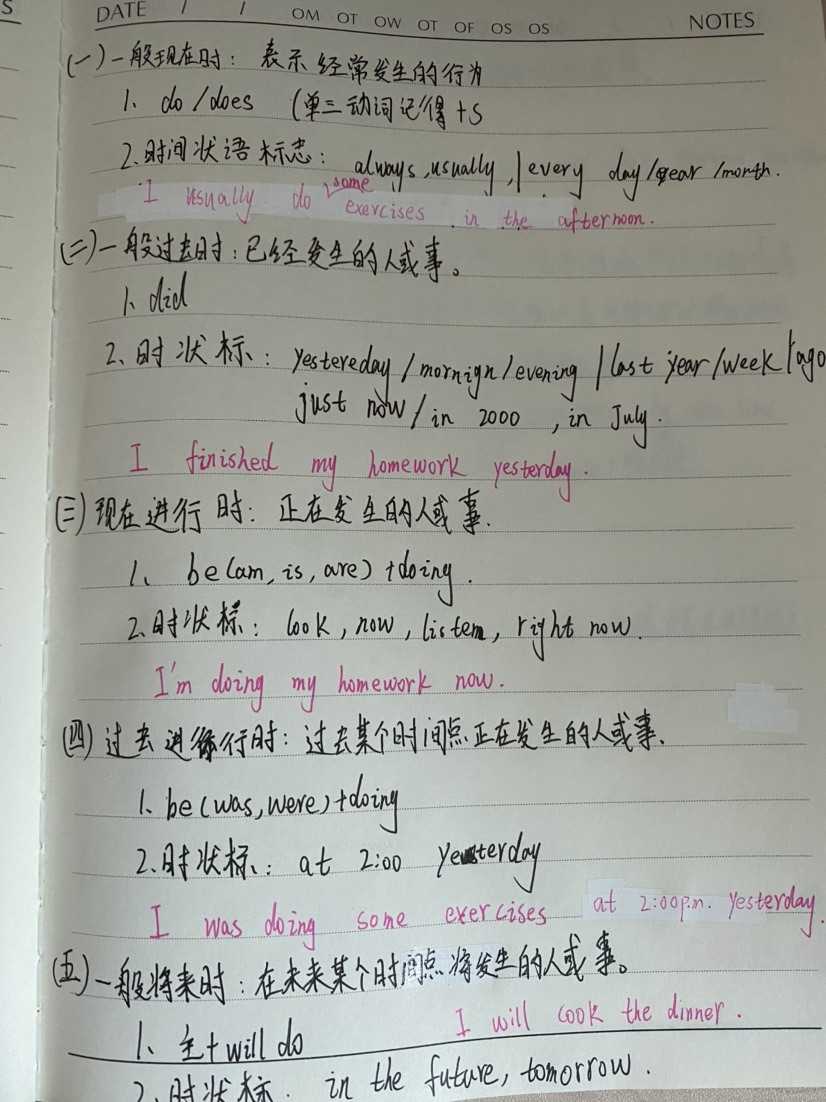 S
DATE / / OM OT OW OT OF OS OS NOTES
(一)一般现在时：表示经常发生的行为
1、do/does (单三动词记得+s
2.时间状语标志：always,usually,/every day/year/month.
I usually do some exercises in the afternoon.
(二)一般过去时：已经发生的人或事。
1、did
2、时状标：yestereday/mornign/evening/last year/week/ago
just now/in 2000, in July.
I finished my homework yesterday.
(三)现在进行时：正在发生的人或事.
1、be(am,is,are)+doing.
2、时状标：look,now,listem,right now.
I'm doing my homework now.
(四)过去进行时：过去某个时间点正在发生的人或事、
1、be(was,were)+doing
2、时状标：at 2:00 yesterday
I was doing some exercises at 2:00p.m. yesterday.
(五)一般将来时：在未来某个时间点将发生的人或事。
I will cook the dinner.
1、主+will do
2、时状标：in the future, tomorrow.